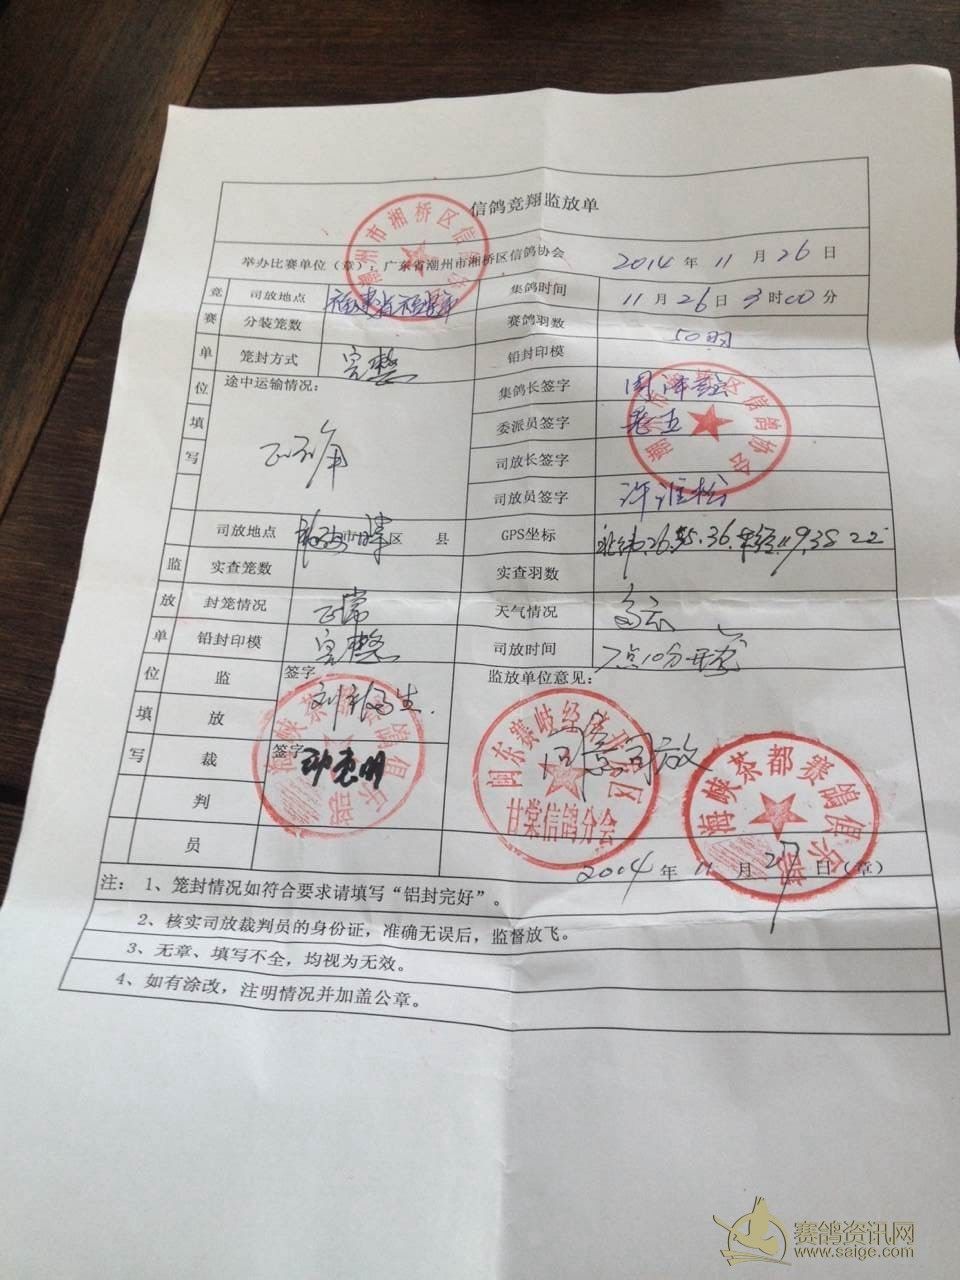 信鸽竞翔监放单
举办比赛单位（章）：广东省潮州市湘桥区信鸽协会 2014 年 11 月 26 日
竞赛单位填写
司放地点 集鸽时间 11 月 26 日 3 时 00 分
分装笼数 赛鸽羽数 50羽
笼封方式 完整 铅封印模
途中运输情况： 正常
集鸽长签字
委派员签字
司放长签字
司放员签字
监放单位填写
司放地点 市 区 县 GPS坐标 北纬26.55.36.东经119.38 22
实查笼数 实查羽数
封笼情况 正常 天气情况 多云
铅封印模 完整 司放时间 7点10分
监放裁判员
签字
签字
监放单位意见： 同意司放
2004 年 11 月 27 日（章）
注： 1、笼封情况如符合要求请填写“铅封完好”。
2、核实司放裁判员的身份证，准确无误后，监督放飞。
3、无章、填写不全，均视为无效。
4、如有涂改，注明情况并加盖公章。
潮州市湘桥区信鸽协会
潮州市湘桥区信鸽协会
海峡茶都赛鸽俱乐部
闽东赛岐经济开发区
甘棠信鸽分会
海峡茶都赛鸽俱乐部
赛鸽资讯网
www.saige.com